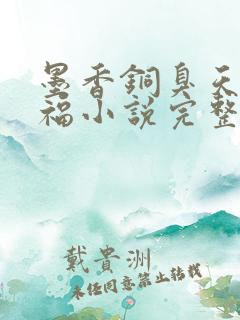 墨香銅臭天
福小說完整
戴貴洲
未任同意禁止轉載